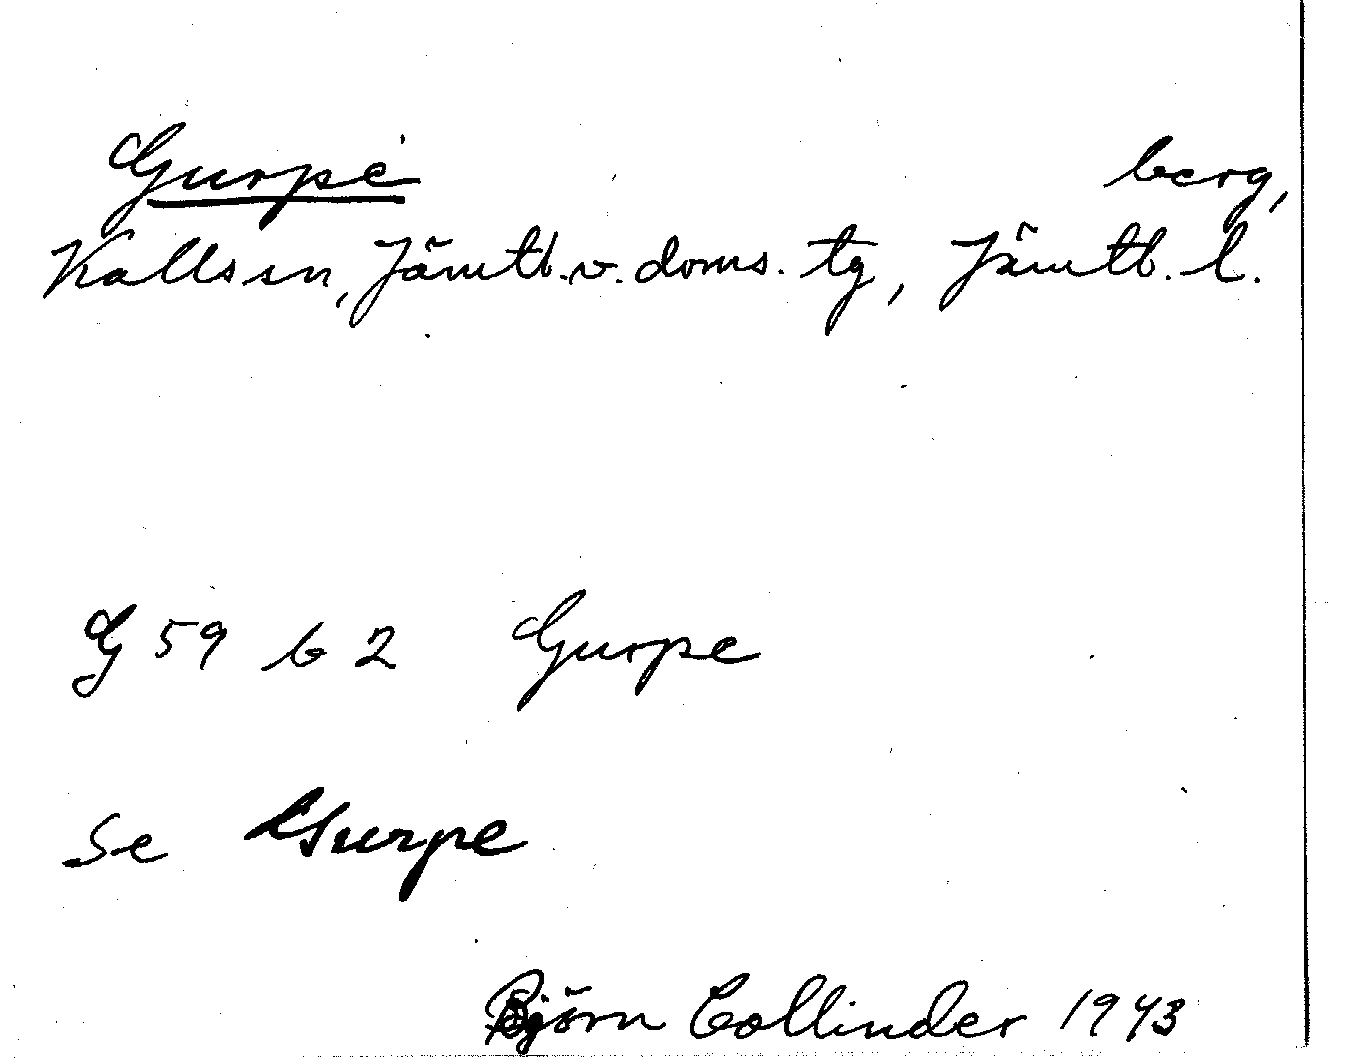 Gurpė berg,
Kalls sn, Jämtl. v. doms. tg, Jämtl. l.
G 59 b 2 Gurpe
Se Gurpe
Björn Collinder 1943